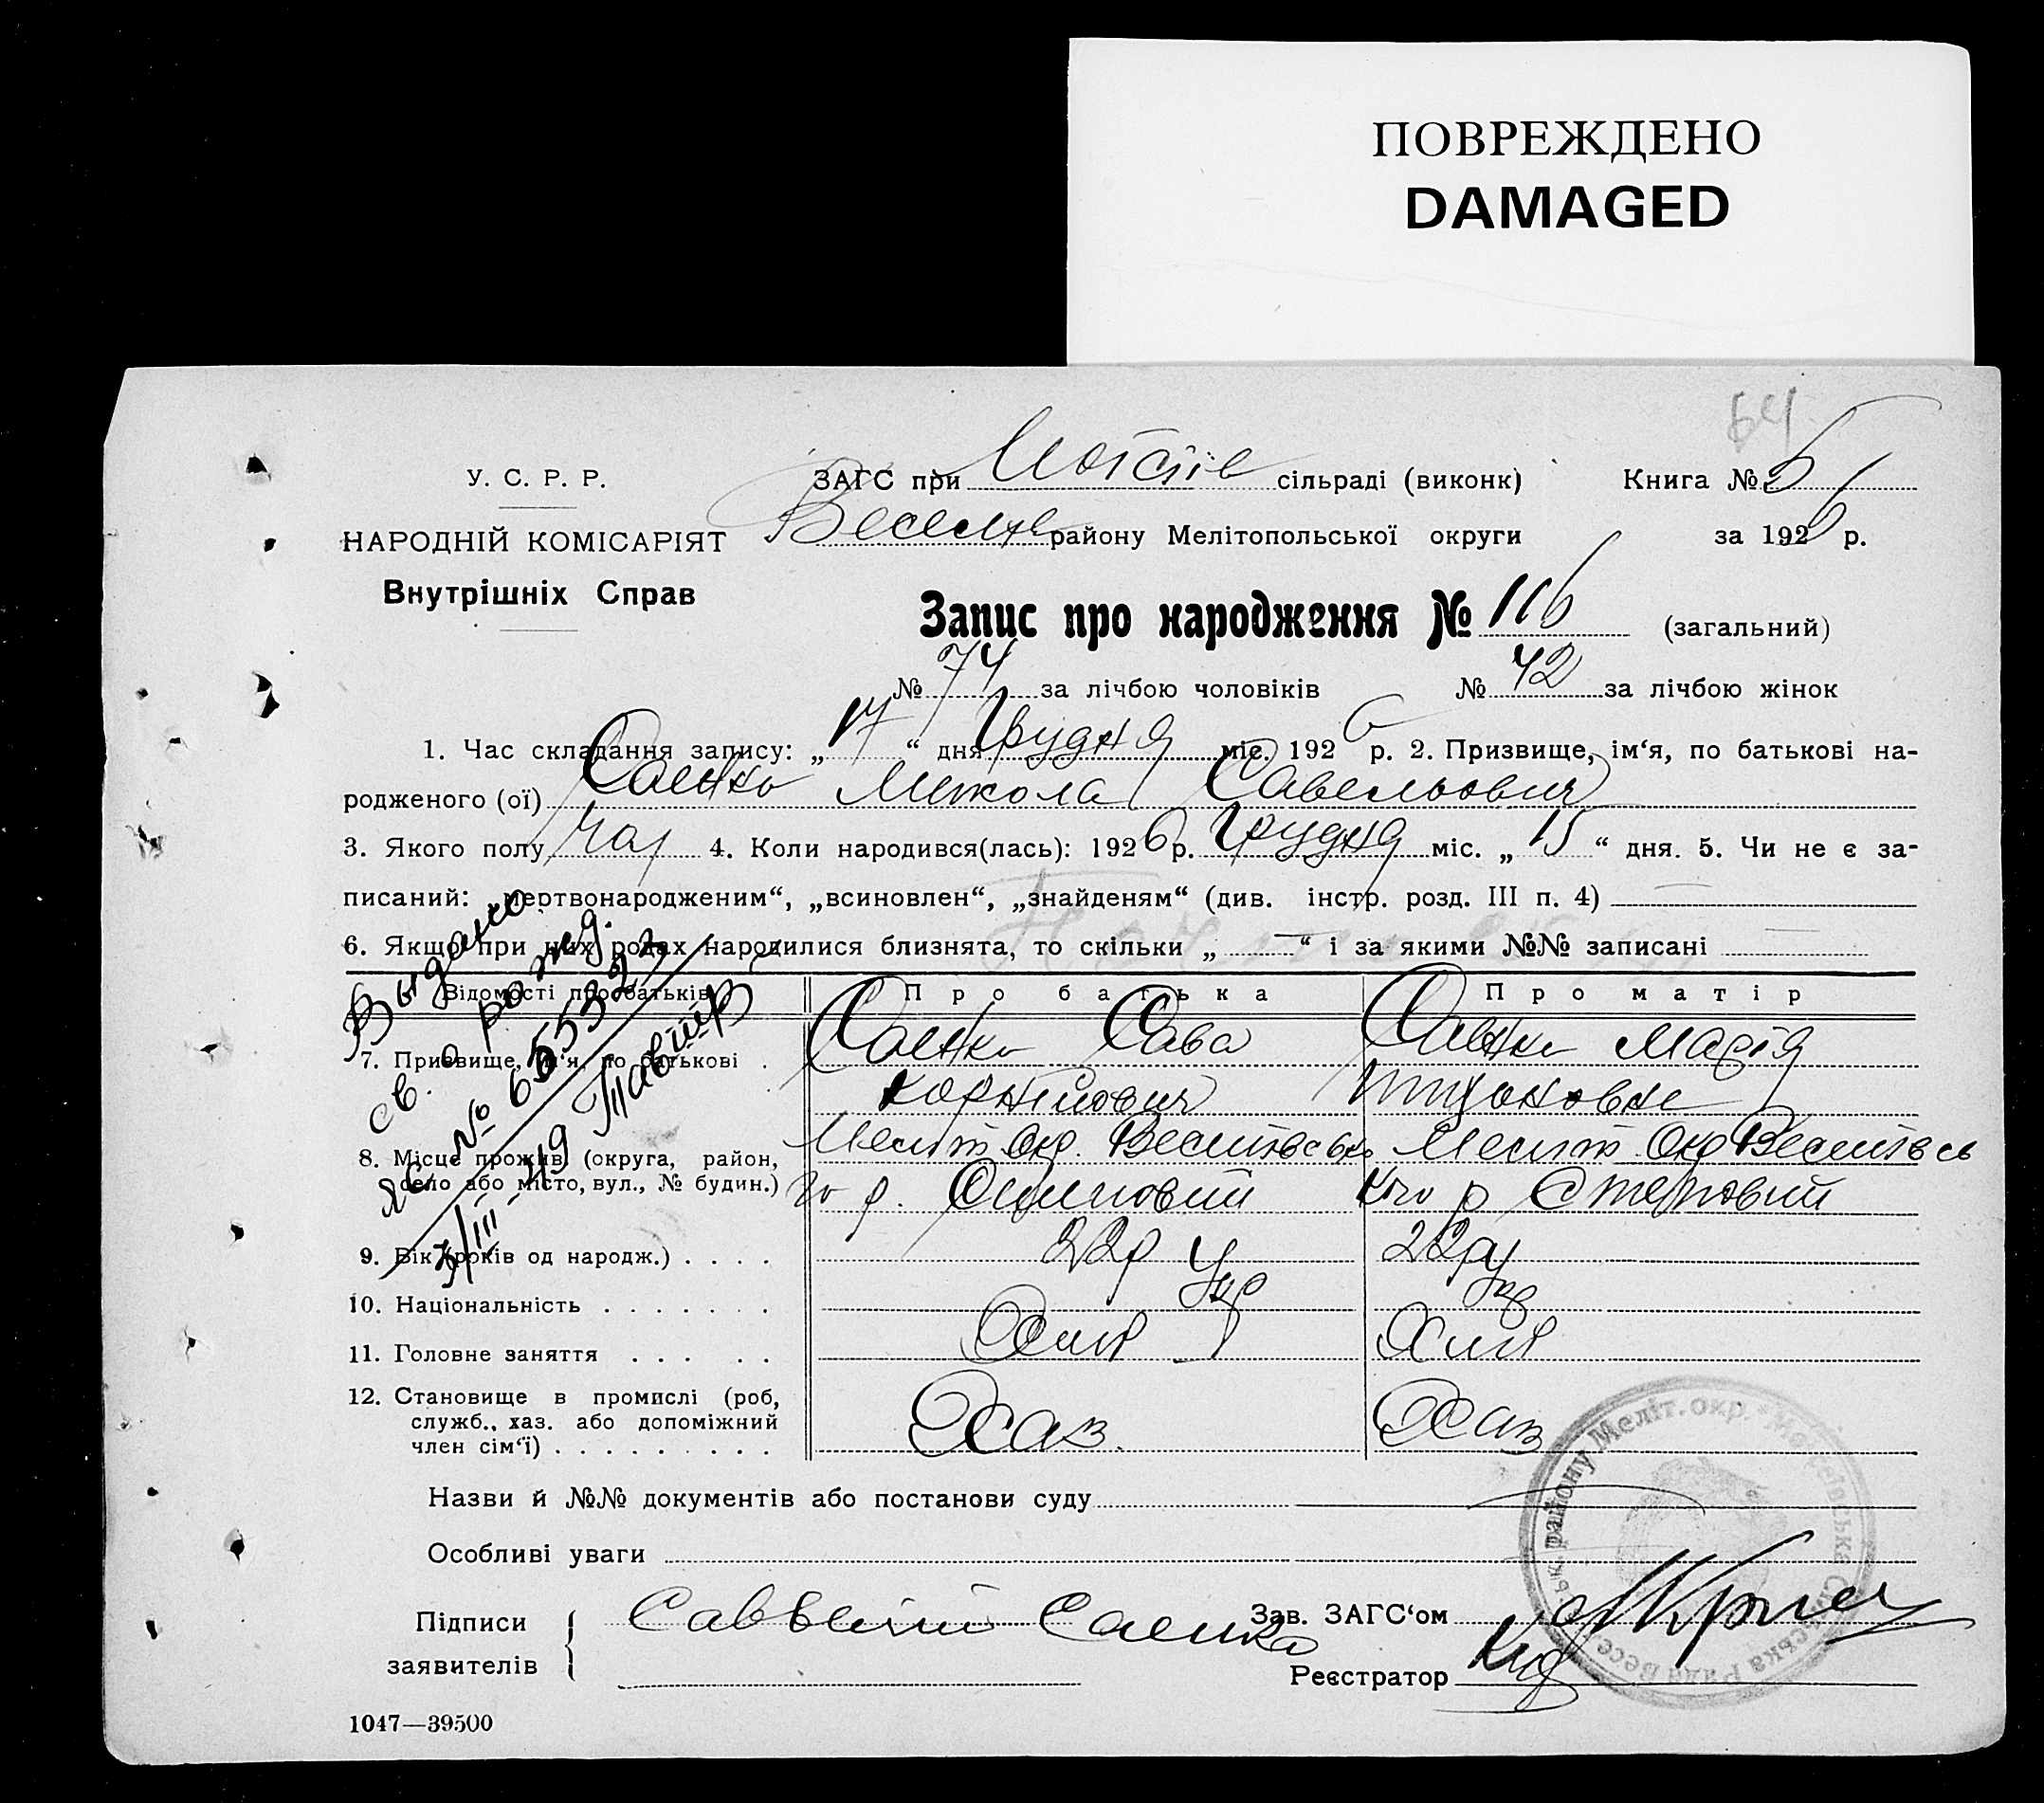 ПОВРЕЖДЕНО
DAMAGED
64
У. С. Р. Р.
ЗАГС при сільраді (виконк) Книга № 5
НАРОДНІЙ КОМІСАРІЯТ
Веселів району Мелітопольської округи за 1926 р.
Внутрішніх Справ
Запис про народження № 116 (загальний)
№ 74 за лічбою чоловіків № 42 за лічбою жінок
1. Час складання запису: „17“ дня Грудня міс. 1926 р. 2. Призвище, ім‘я, по батькові на-
родженого (ої) Саенко Микола Савельович
3. Якого полу чол 4. Коли народився(лась): 1926 р. Грудня міс. „15“ дня. 5. Чи не є за-
писаний: „мертвонародженим“, „всиновлен“, „знайденям“ (див. інстр. розд. III п. 4)
6. Якщо при цих родах народилися близнята, то скільки „ “ і за якими №№ записані
Відомості про батьків Про батька Про матір
7. Призвище, ім‘я, по батькові . Саенко Сава Саенко Марія
Корнійович
8. Місце прожив. (округа, район, село або місто, вул., № будин.) Меліт Окр. Веселівсько Меліт Окр Веселівсь
го р. кго р
9. Вік (років од народж.) . . . . 22р 22р
10. Національність . . . . . . . Укр Укр
11. Головне заняття . . . . .
12. Становище в промислі (роб, служб., хаз. або допоміжний член сім‘ї) . . . . . . . . . Хаз. Хаз
Выдано
св. о рожд.
ЯС № 655323
3/III-49
Назви й №№ документів або постанови суду
Особливі уваги
Підписи заявителів Саенко
Зав. ЗАГС‘ом
Реєстратор
району Меліт. окр.
1047—39500